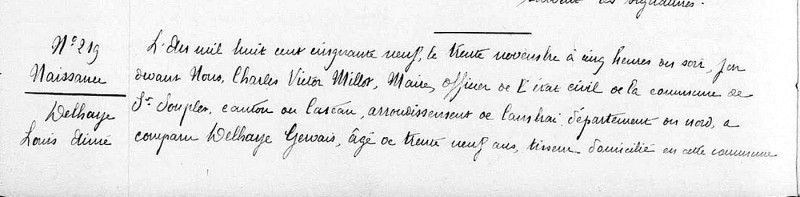 suivent les signatures.
N° 219
Naissance
Delhaye
Louis Aimé
L'An mil huit cent cinquante neuf, le trente novembre à cinq heures du soir, par
devant Nous, Charles Victor Millot, Maire, officier de l'état civil de la commune de
St. Souplet, canton du Cateau, arrondissement de Cambrai, département du nord, a
comparu Delhaye Gervais, âgé de trente neuf ans, tisseur domicilié en cette commune